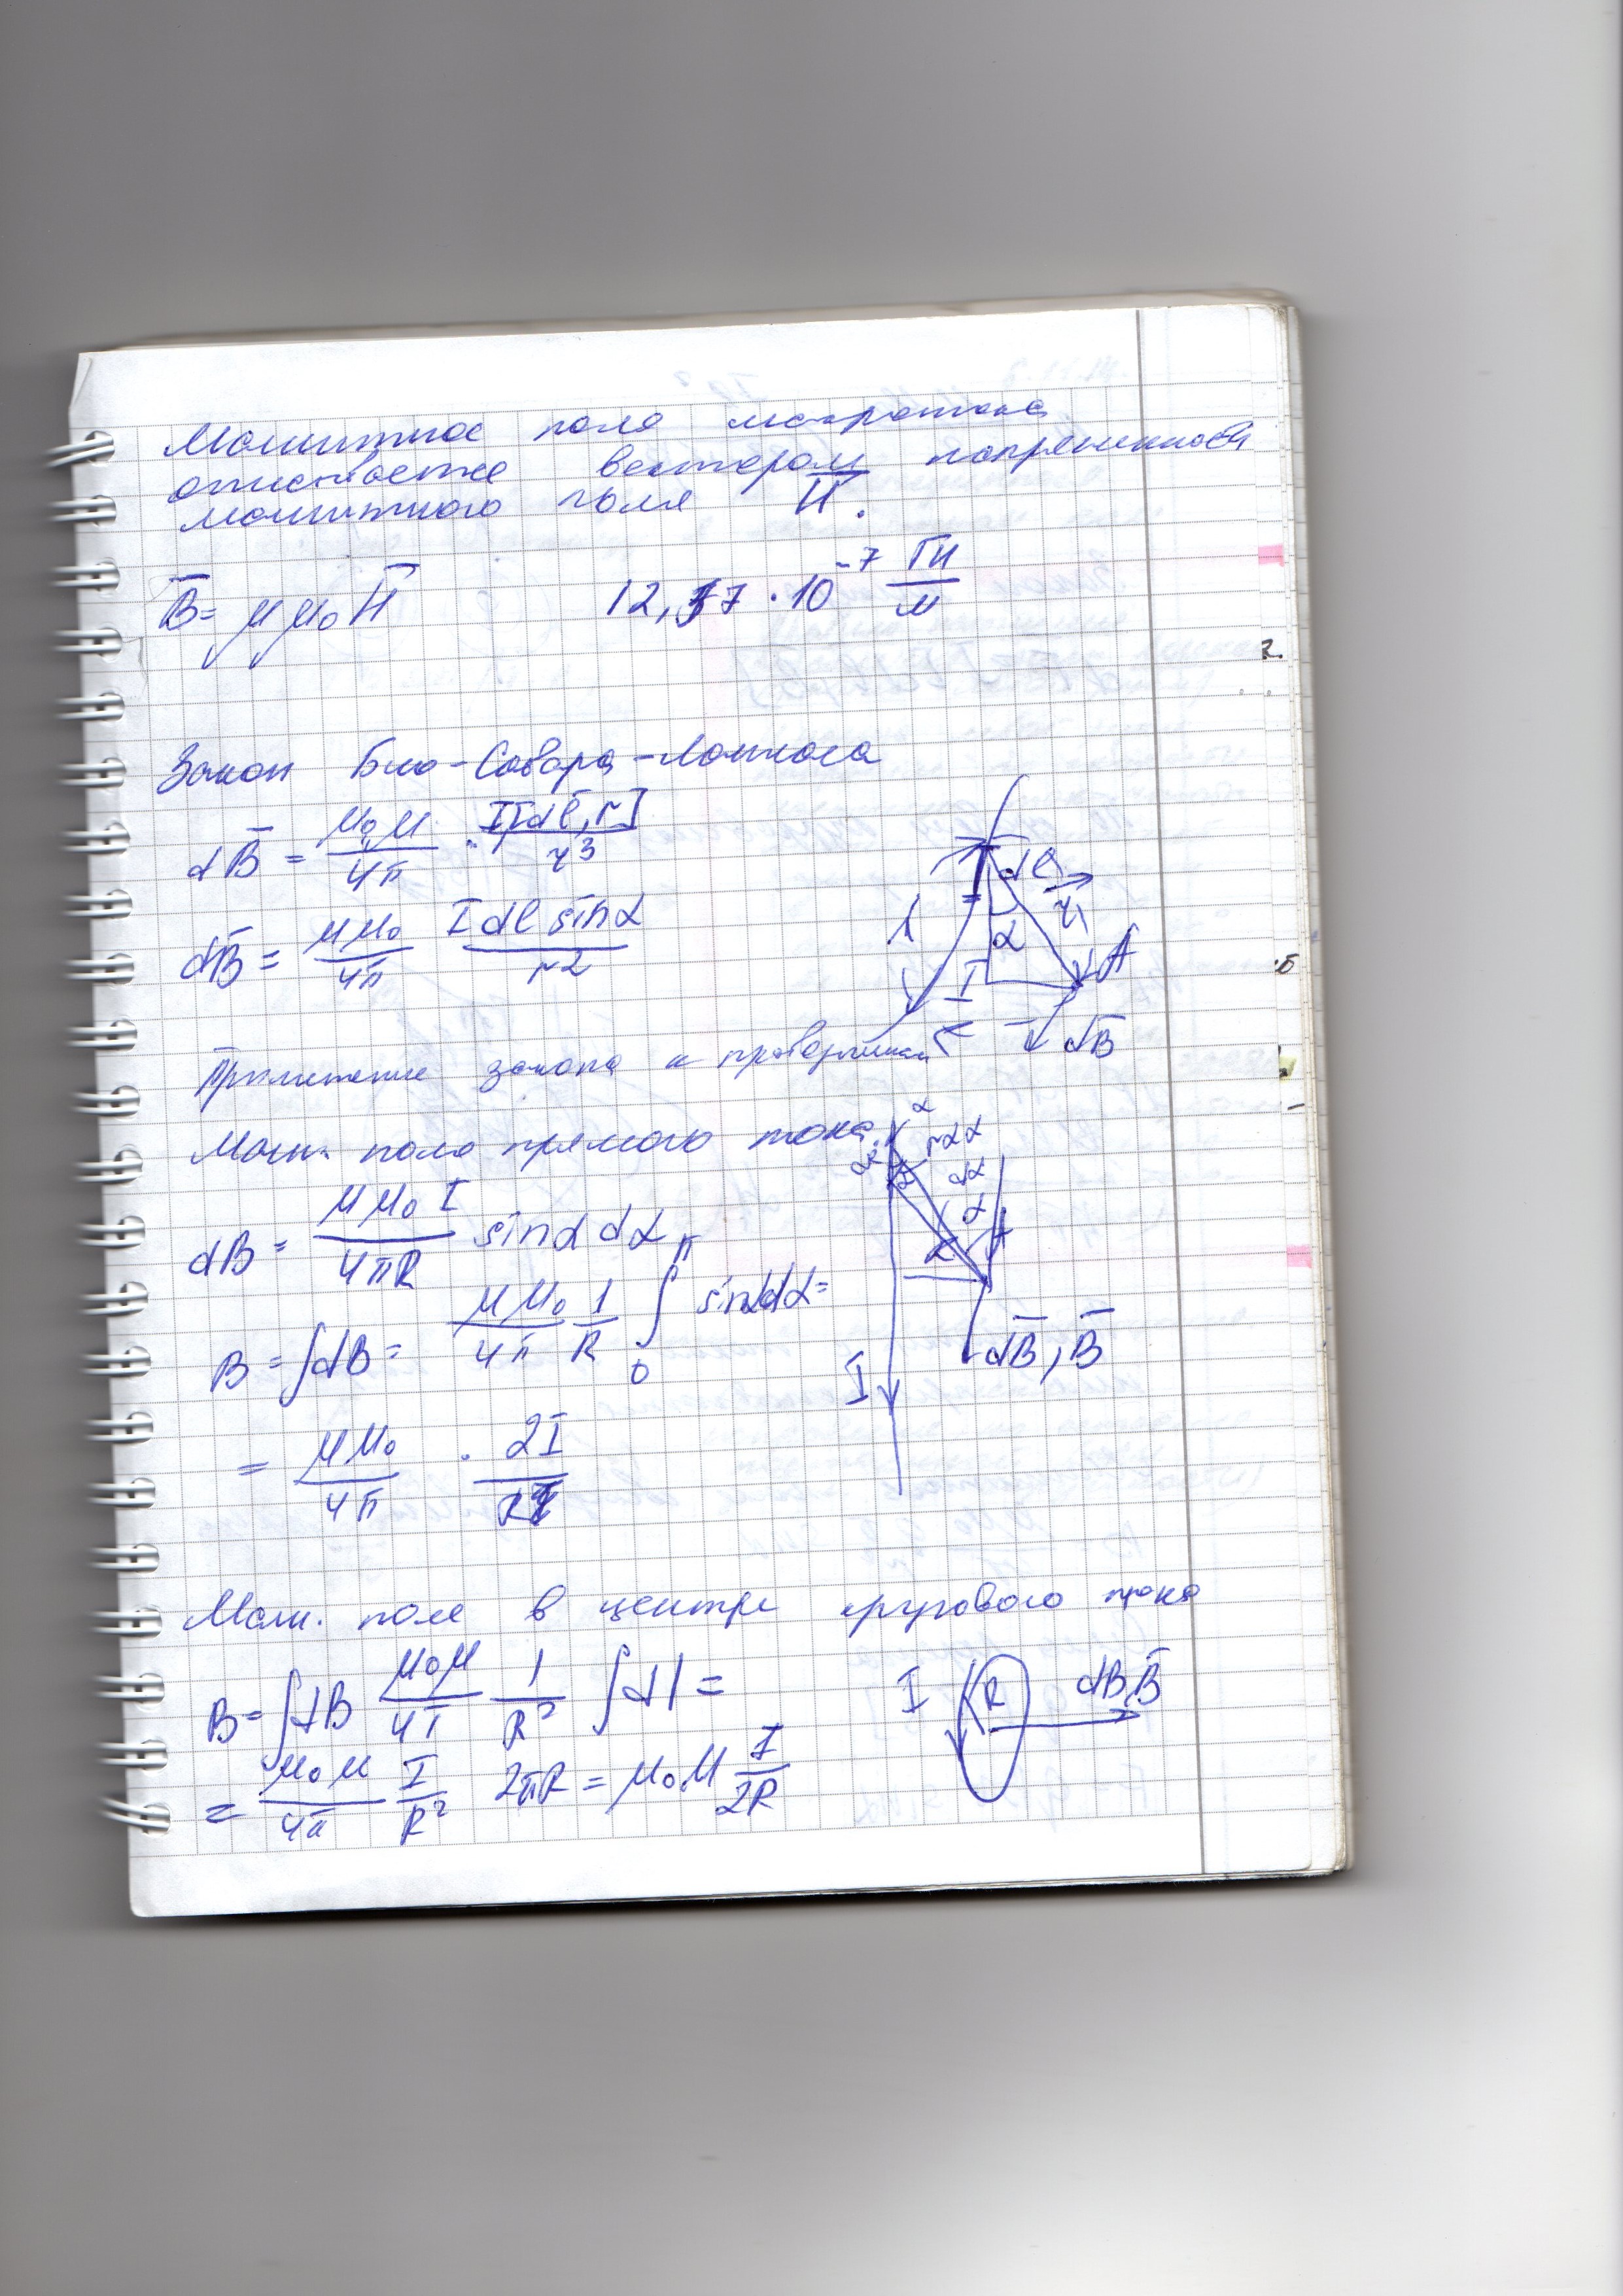 Магнитное поле макротока
описывается вектором напряженности
магнитного поля H̅.
B̅ = μμ₀H̅ 12,57 · 10⁻⁷ Гн/м
Закон Био-Савара-Лапласа
dB̅ = μ₀μ/4π · I[dl̅, r]/r³
dB̅ = μμ₀/4π I dl sinα/r²
dl
r₁
α
A
I
dB̅
Применение закона к проводникам
Магн. поле прямого тока.
dB = μμ₀I/4πR sinα dα
α
rdα
dα
α
B = ∫dB = μμ₀/4π 1/R ∫₀^π sinαdα =
I
dB̅, B̅
= μμ₀/4π · 2I/R
Магн. поле в центре кругового тока
B = ∫dB μ₀μ/4π 1/R² ∫dl =
I
R
dB̅, B̅
= μ₀μ/4π I/R² 2πR = μ₀μ I/2R